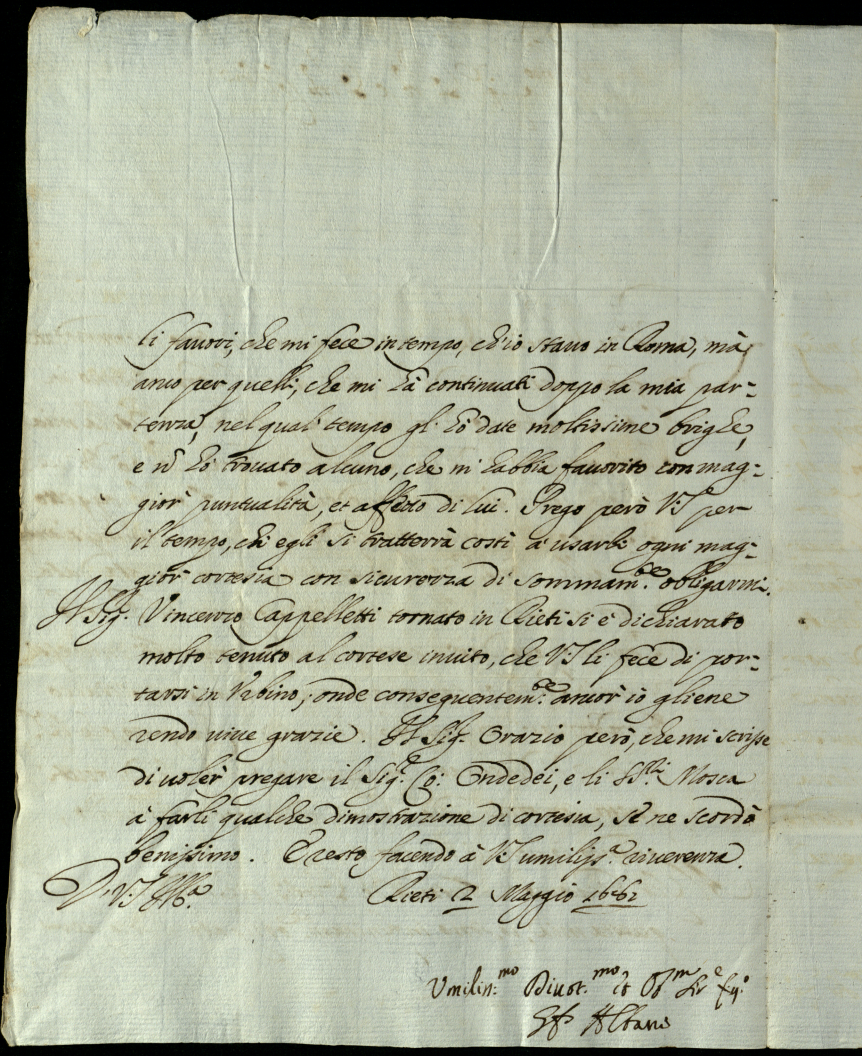 li fauori, che mi fece in tempo, ch'io stauo in Roma, mà
anco per quelli, che mi hà continuati doppo la mia par=
tenza, nel qual tempo gl' hò date moltissime brighe,
e nō hò trouato alcuno, che mi habbia fauorito con mag=
gior puntualità, et affetto di lui. Prego però V.S. per
il tempo, ch'egli si tratterrà costì à usarli ogni mag=
gior cortesia con sicurezza di sommam.te obligarmi.
Il Sig.r Vincenzo Cappelletti tornato in Rieti si è dichiarato
molto tenuto al cortese inuito, che V.S. li fece di por=
tarsi in Vrbino; onde conseguentem.te ancor io gliene
rendo viue grazie. Il Sig.r Orazio però, che mi scrisse
di uoler pregare il Sig.r Co: Ondedei, e li SS.ri Mosca
à farli qualche dimostrazione di cortesia, se ne scordò
benissimo. E resto facendo à V.S. umiliss.a riuerenza.
D. V.S. Ill.ma Rieti 2 Maggio 1661
Vmiliss.mo Diuot.mo et Ob.mo Ser.e
Albani